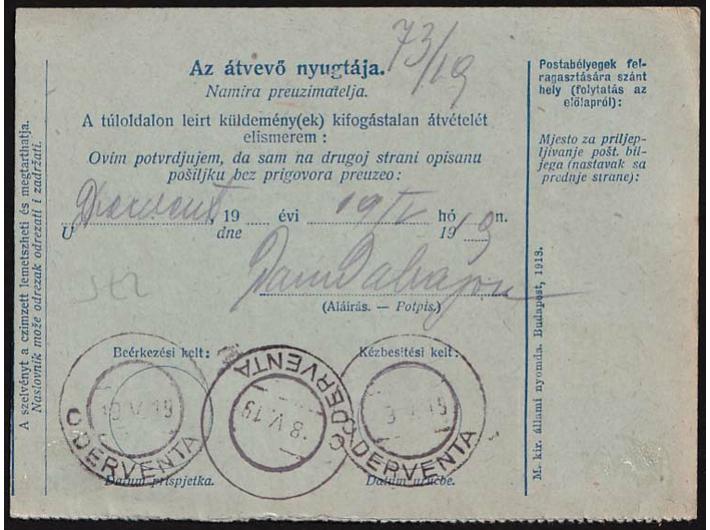 73/19
Az átvevő nyugtája.
Namira preuzimatelja.
A túloldalon leirt küldemény(ek) kifogástalan átvételét
elismerem :
Ovim potvrdjujem, da sam na drugoj strani opisanu
pošiljku bez prigovora preuzeo :
Dervent, 19 évi 19/V hó n.
U dne 19 19
(Aláírás. — Potpis.)
Beérkezési kelt :
Kézbesitési kelt :
19 V. 19
DERVENTA
8. V. 19
DERVENTA
V. 19
DERVENTA
Datum prispjetka.
Datum uručbe.
Postabélyegek fel-
ragasztására szánt
hely (folytatás az
előlapról) :
Mjesto za priljep-
ljivanje pošt. bil-
jega (nastavak sa
prednje strane) :
A szelvényt a czimzett lemetszheti és megtarthatja.
Naslovnik može odrezak odrezati i zadržati.
M. kir. állami nyomda. Budapest, 1913.